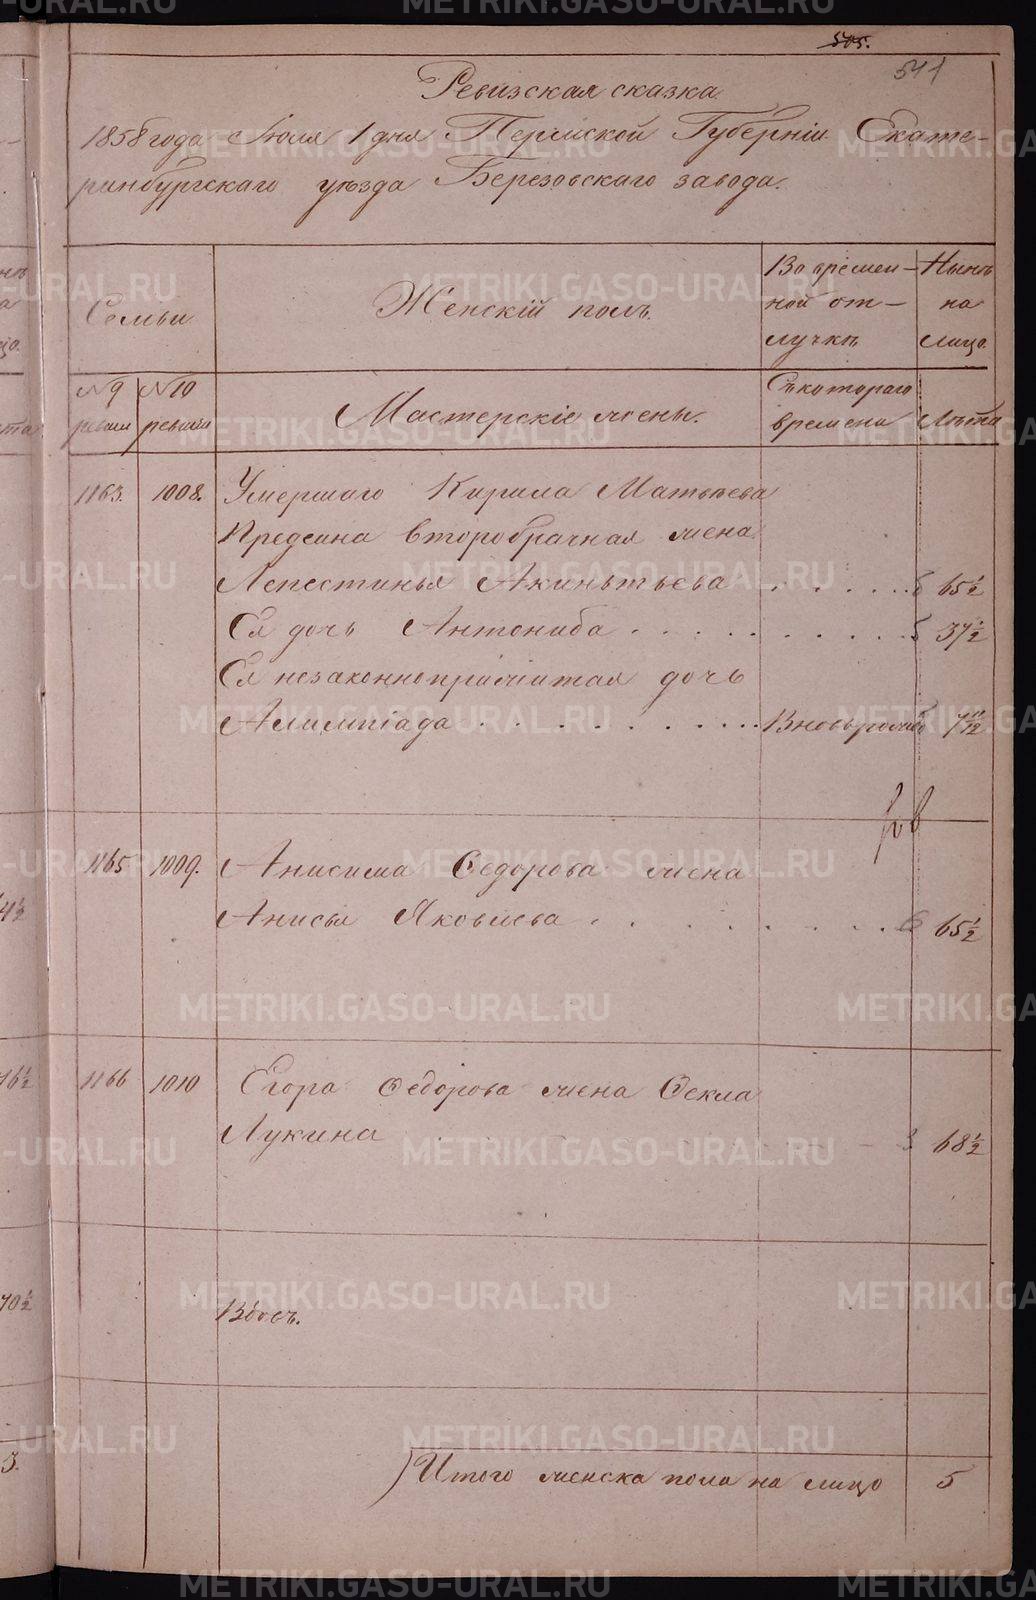 505.
541
Ревизская сказка
1858 года Июля 1 дня Пермской Губерніи Екате-
ринбургскаго уѣзда Березовскаго завода.
Семьи
Женскій полъ.
Во времен-
ной от-
лучкѣ
Нынѣ
на
лицо
№ 9
ревизіи
№ 10
ревизіи
Мастерскіе жены.
Съ котораго
времени
Лѣта
1163. 1008. Умершаго Кирила Матвѣева
вторображная жена
Лепестинья Акинтьева . . . . . . б 65½
Ея дочь Антонида . . . . . . . . б 37½
Ея незаконноприжитая дочь
Алимпіада . . . . . . . . . Вновьрожд б 7 11/12
1165 1009. Анисима Ѳедорова жена
Анисья Яковлева . . . . . . . 6 65½
1166 1010 Егора Ѳедорова жена Ѳекла
Лукина - 3 68½
Итого женска пола на лицо 5
METRIKI.GASO-URAL.RU